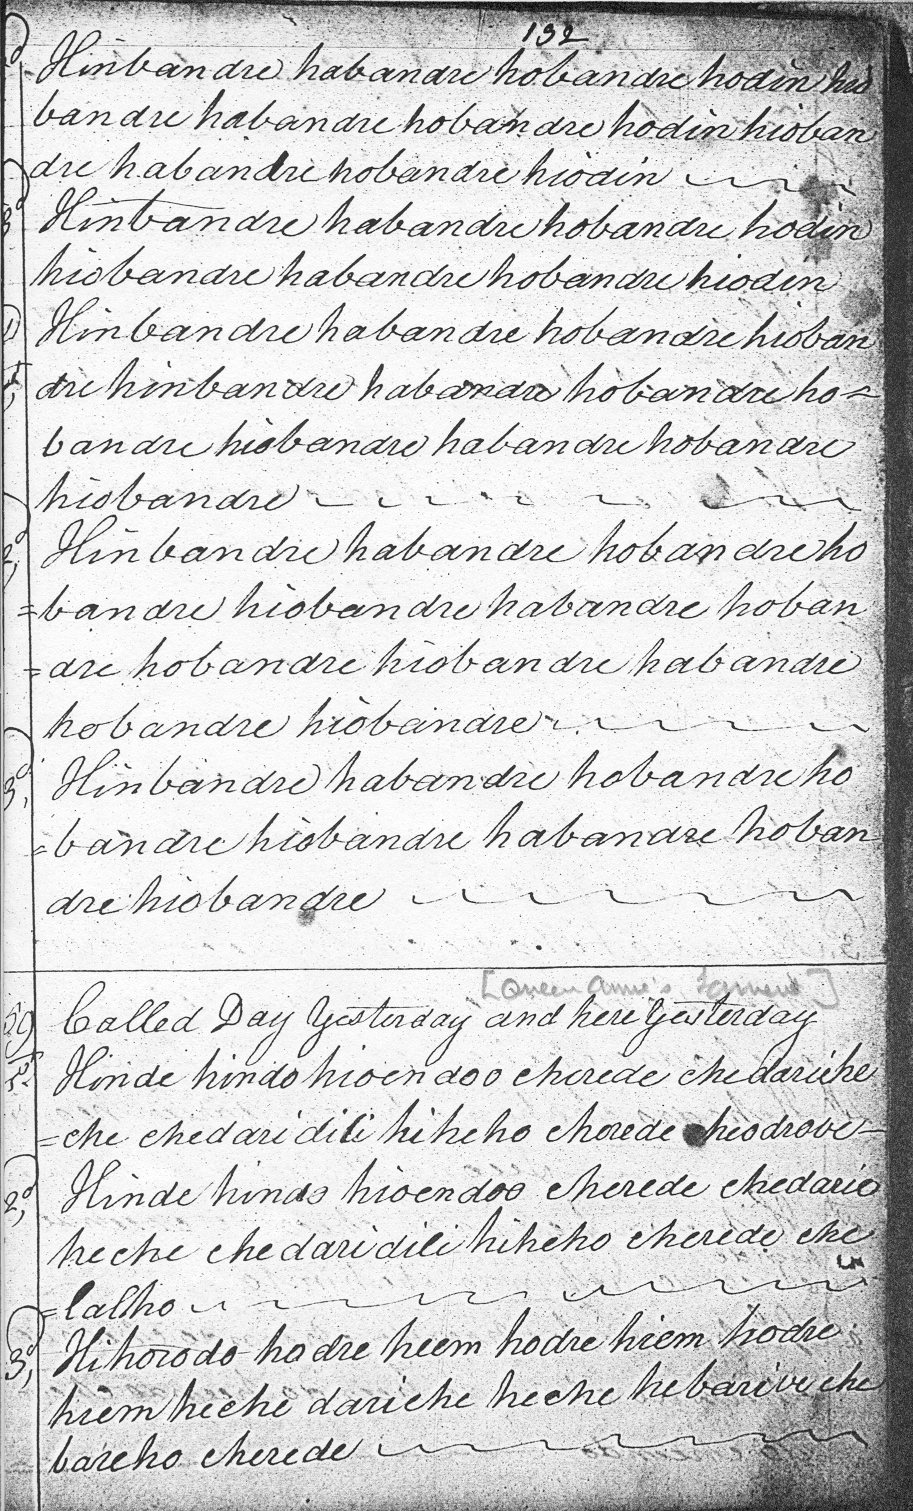 132
Hinbandre habandre hobandre hodin hio
bandre habandre hobandre hodin hioban
dre habandre hobandre hiodin
Hinbandre habandre hobandre hodin
hiobandre habandre hobandre hiodin
Hinbandre habandre hobandre hioban
dre hinbandre habandre hobandre ho=
bandre hiobandre habandre hobandre
hiobandre
Hinbandre habandre hobandre ho
=bandre hiobandre habandre hoban
=dre hobandre hiobandre habandre
hobandre hiobandre
3, Hinbandre habandre hobandre ho
=bandre hiobandre habandre hoban
dre hiobandre
[Queen Anne's Lament]
59 Called Day Yesterday and here Yesterday
Hinde hindo hioendoo cherede chedariche
=che chedari dili hiheho cherede heodrove
2d, Hinde hindo hioendoo cherede chedarie
heche chedari dili hiheho cherede che
=lalho
3d, Hihorodo hodre heem hodre hiem hodre
hiem heche dariche heche hebarive che
bareho cherede